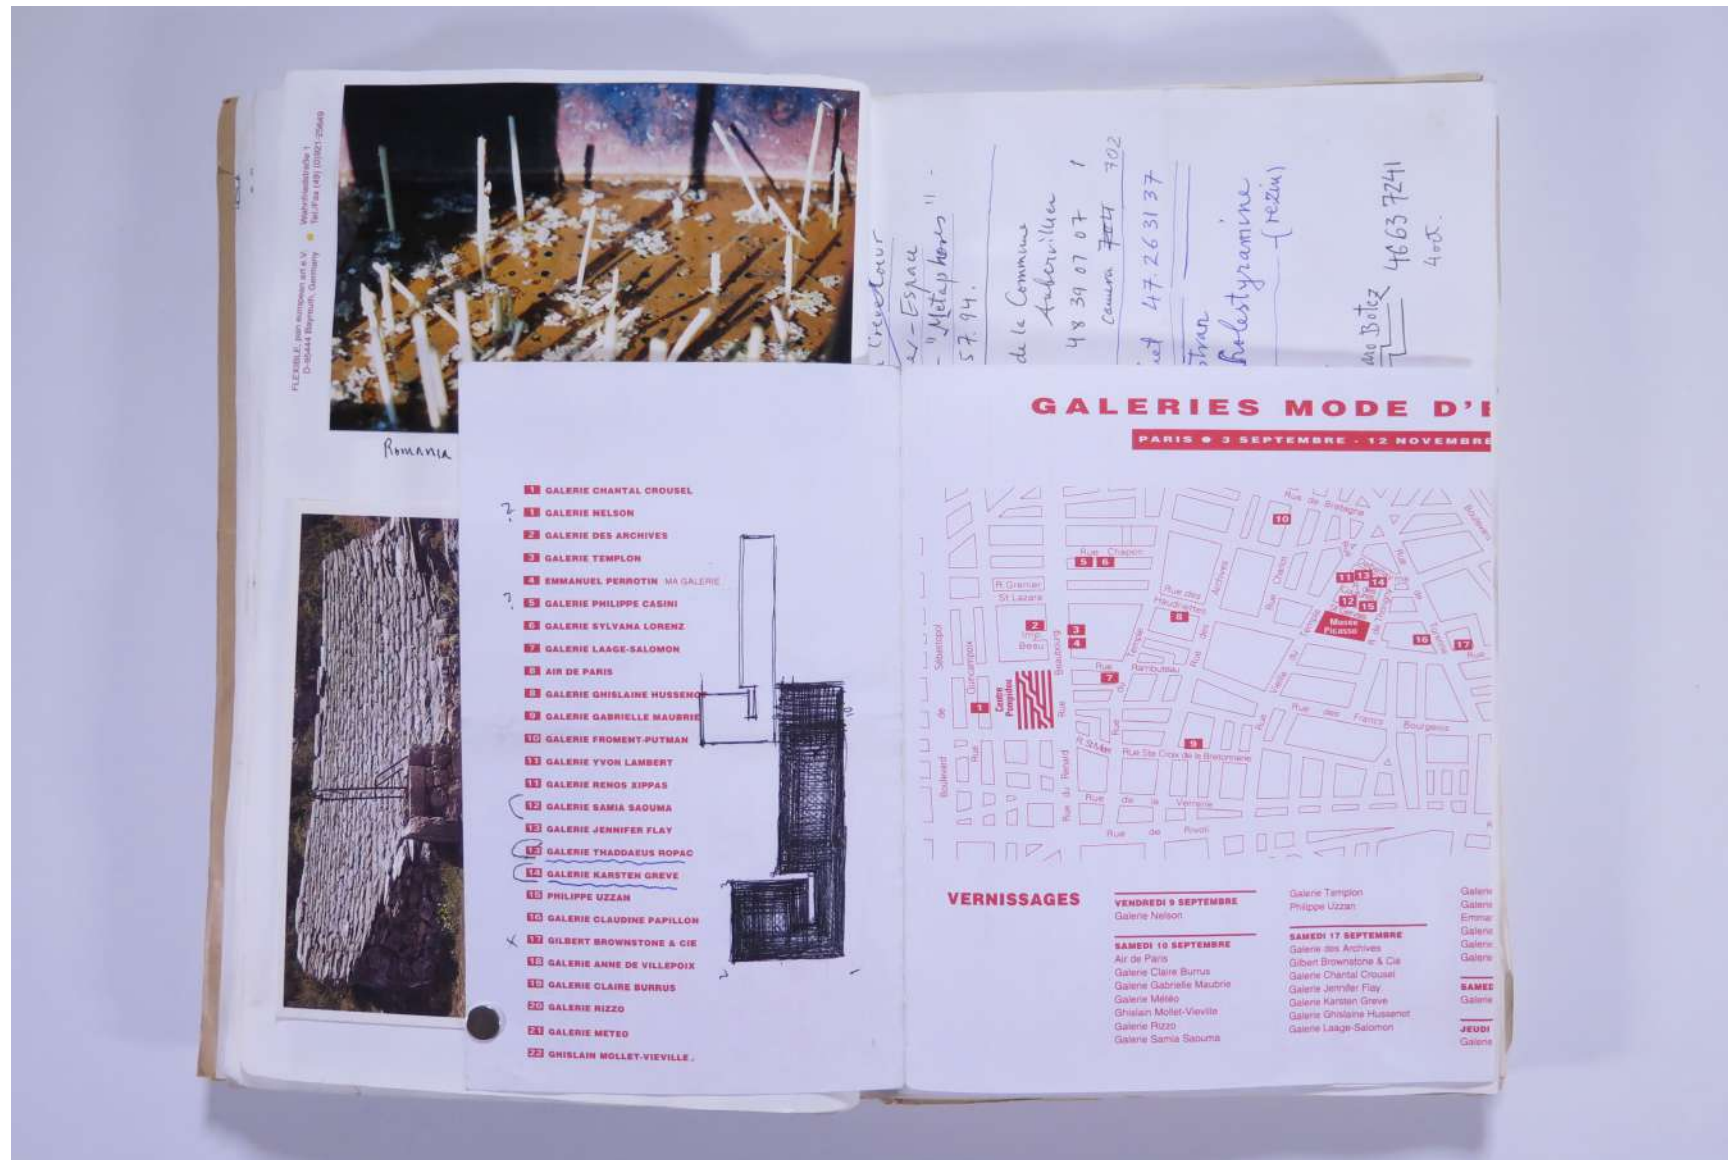 FLEXIBLE, pan european art e.V. • Wahnfriedstraße 1
D-95444 Bayreuth, Germany Tel./Fax (49) (0)921-25649
Romania
- Espace
- "Métaphores" -
57.94.
de la Commune
Aubervillier
48 39 07 07 1
camera 702
47.263137
(rezin)
Botez 46637241
4 oct.
1 GALERIE CHANTAL CROUSEL
? 1 GALERIE NELSON
2 GALERIE DES ARCHIVES
3 GALERIE TEMPLON
4 EMMANUEL PERROTIN MA GALERIE
? 5 GALERIE PHILIPPE CASINI
6 GALERIE SYLVANA LORENZ
7 GALERIE LAAGE-SALOMON
8 AIR DE PARIS
8 GALERIE GHISLAINE HUSSENO
9 GALERIE GABRIELLE MAUBRIE
10 GALERIE FROMENT-PUTMAN
11 GALERIE YVON LAMBERT
11 GALERIE RENOS XIPPAS
12 GALERIE SAMIA SAOUMA
13 GALERIE JENNIFER FLAY
13 GALERIE THADDAEUS ROPAC
14 GALERIE KARSTEN GREVE
15 PHILIPPE UZZAN
16 GALERIE CLAUDINE PAPILLON
x 17 GILBERT BROWNSTONE & CIE
18 GALERIE ANNE DE VILLEPOIX
19 GALERIE CLAIRE BURRUS
20 GALERIE RIZZO
21 GALERIE METEO
22 GHISLAIN MOLLET-VIEVILLE.
GALERIES MODE D'E
PARIS • 3 SEPTEMBRE - 12 NOVEMBRE
Rue de Bretagne
Boulevard
10
Rue Chapon
5 6
Rue Charlot
Archives
11 13
14
12 15
R. Grenier
St Lazare
Rue des
Haudriettes
8
Musée
Picasso
2
Imp.
Beau
3
4
Sébastopol
Quincampoix
Beaubourg
Temple
Rue des
Turenne
16 17
Rue
Rue Rambuteau
7
Vieille du Temple
1
Centre
Pompidou
Rue
Rue des Francs Bourgeois
R. St Merri
Rue Ste Croix de la Bretonnerie
9
Boulevard de
Rue
Rue du Renard
Rue de la Verrerie
Rue de Rivoli
VERNISSAGES
VENDREDI 9 SEPTEMBRE
Galerie Nelson
SAMEDI 10 SEPTEMBRE
Air de Paris
Galerie Claire Burrus
Galerie Gabrielle Maubrie
Galerie Météo
Ghislain Mollet-Vieville
Galerie Rizzo
Galerie Samia Saouma
Galerie Templon
Philippe Uzzan
SAMEDI 17 SEPTEMBRE
Galerie des Archives
Gilbert Brownstone & Cie
Galerie Chantal Crousel
Galerie Jennifer Flay
Galerie Karsten Greve
Galerie Ghislaine Hussenot
Galerie Laage-Salomon
Galerie
Galerie
Emma
Galerie
Galerie
Galerie
SAMED
Galerie
JEUDI
Galerie